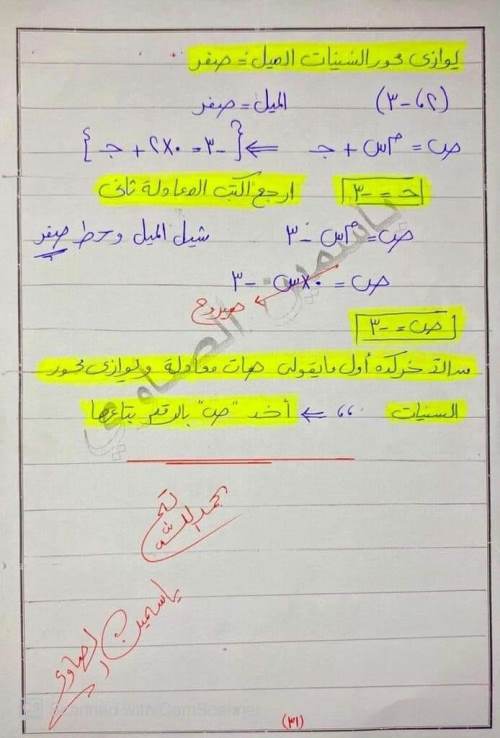 يوازى محور السينات الميل = صفر
(٢ ، -٣) الميل = صفر
ص = م س + جـ ⇐ { -٣ = ٠×٢ + جـ }
جـ = -٣ ارجع اكتب المعادلة تانى
ص = م س - ٣ شيل الميل وحط صفر
ص = ٠×س - ٣
هيروح
ص = -٣
أول ما يقولى هات معادلة ويوازى محور
السينات ،، ⇐ أخد "ص" بالرقم بتاعها
تم بحمد الله
ياسمين الصاوي
ياسمين الصاوي
Scanned with CamScanner
(٣١)